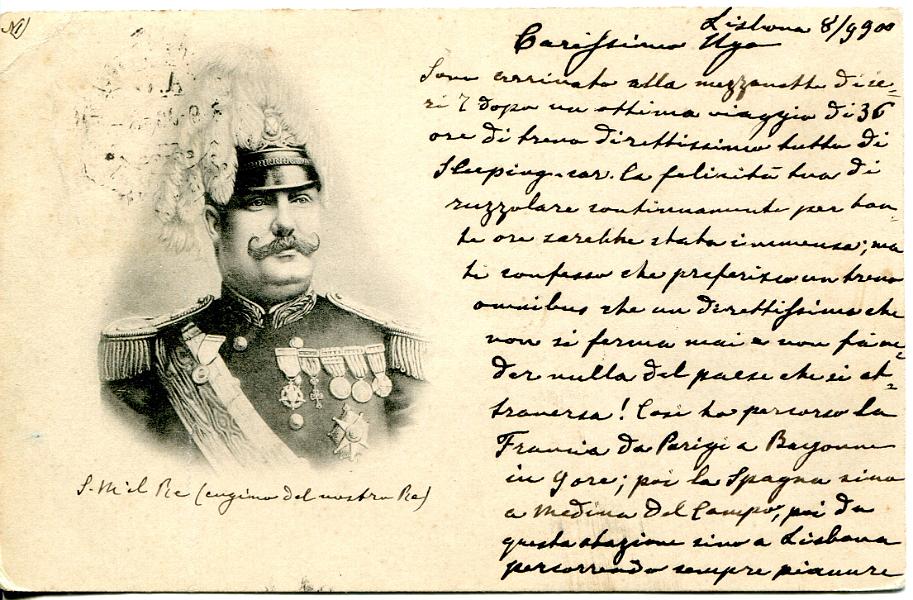 Lisbona 8/9 900
Carissimo Ugo
Sono arrivato alla mezzanotte di ie-
ri 7 dopo un ottimo viaggio di 36
ore di treno direttissimo tutto di
Sleeping-car. La felicità tua di
ruzzolare continuamente per tan-
te ore sarebbe stata immensa; ma
ti confesso che preferisco un treno
omnibus che un direttissimo che
non si ferma mai e non fa ve-
der nulla del paese che si at-
traversa! Così ho percorso la
Francia da Parigi a Bayonne
in 9 ore; poi la Spagna sino
a Medina del Campo, poi da
questa stazione sino a Lisbona
percorrendo sempre pianure
S. M. il Re (cugino del nostro Re)